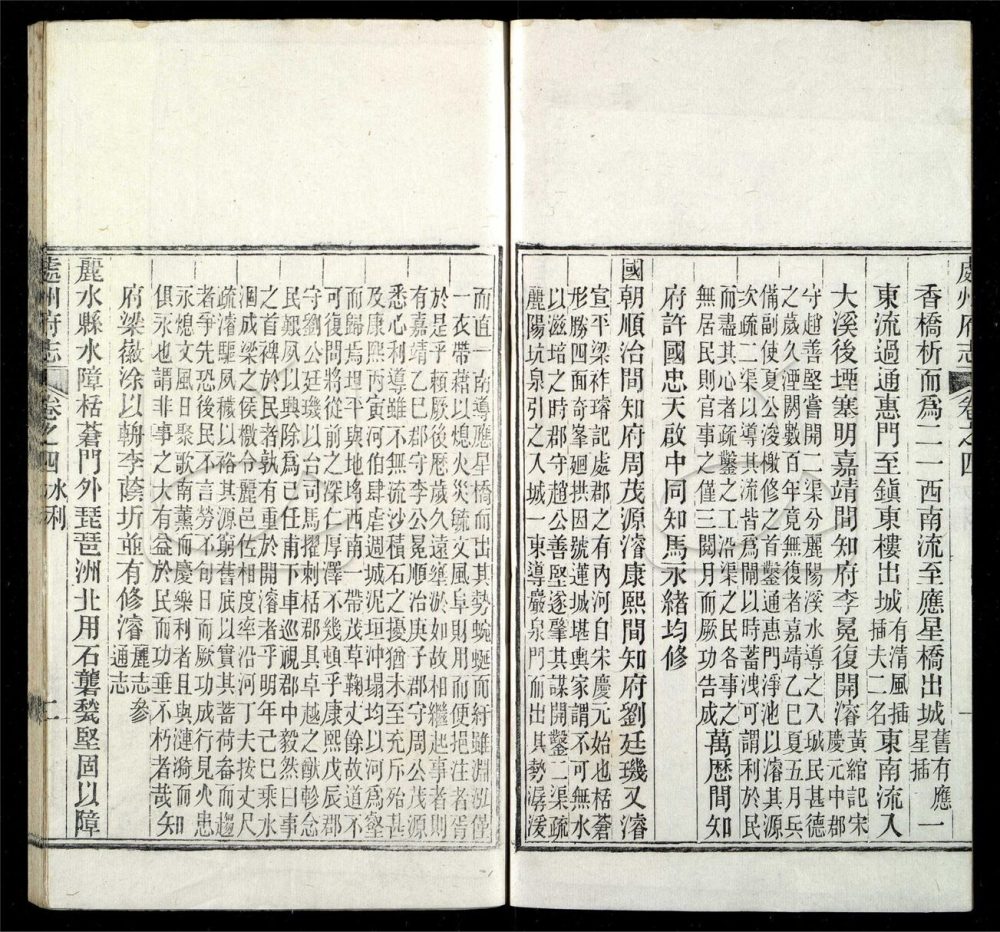 處州府志 卷之四
香橋析而爲二一西南流至應星橋出城舊有應一星插
東流過通惠門至鎮東樓出城有清風插插夫二名東南流入
大溪後堙塞明嘉靖間知府李冕復開濬黃綰記宋慶元中郡
守趙善堅嘗開二渠分麗陽溪水導之入城民甚德
之歲久湮闕數百年竟無復者嘉靖乙巳夏五月兵
備副使夏公浚檄修之首鑿通惠門淨池以濬其源
次疏二渠以導其流皆爲閘以時蓄洩可謂利於民
而盡其心者疏鑿之工沿渠之民各事之
無居民則官事之僅三閱月而厥功告成萬歷間知
府許國忠天啟中同知馬永緒均修
國朝順治間知府周茂源濬康熙間知府劉廷璣又濬
宣平梁祚璿記處郡之有內河自宋慶元始也栝蒼
形勝四面奇峯廻拱因號蓮城堪輿家謂不可無水
以滋培之時郡守趙公善堅遂肇其謀開鑿二渠疏
麗陽坑泉引之入城一東導嚴泉門而出其勢潺湲
而直一南導應星橋而出其勢蜿蜒而紆雖淵泓僅
一衣帶藉以熄火災毓文風阜財用而便挹注者胥
於是乎賴厥後歷歲久遠壅淤如故相繼起事者則
有嘉靖乙巳郡守李公冕順治庚子郡守周公茂源
悉心利導雖不無流沙積石之擾猶未至充斥殆甚
及康熙丙寅河伯肆虐週城泥垣沖塌均以河爲壑
而歸焉坦平與地埒西南一帶茂草鞠丈餘故道不
可復問將從前之深仁厚澤不幾頓乎康熙戊辰郡
守劉公廷璣以台司馬擢剌栝郡具卓越之猷軫念
民艱夙以興除爲己任甫下車巡視郡中毅然曰事
之首裨於民者孰有重於開濬者乎明年己巳乘水
涸成梁之候檄令麗邑佐相度率沿河丁夫按丈尺
疏濬驅夙穢以裕其源窮舊底以實其蓄荷畚而趨
者爭先恐後民不言勞不旬日而厥功成行見火患
永熄文風日聚歌南薰而慶樂利者且與漣漪而
俱永也謂非事之大有益於民而功垂不朽者哉知
府梁徽涂以輈李蔭圻並有修濬麗志參通志
麗水縣水障栝蒼門外琵琶洲北用石礱甃堅固以障
處州府志 卷之四 水利